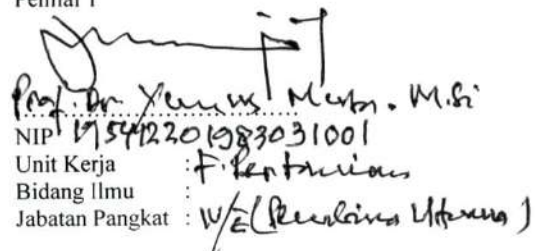 Penilai 1
Prof. Dr. Yunus Musa. M.Si
NIP 195412201983031001
Unit Kerja : F. Pertanian
Bidang Ilmu :
Jabatan Pangkat : IV/E (Pembina Utama)